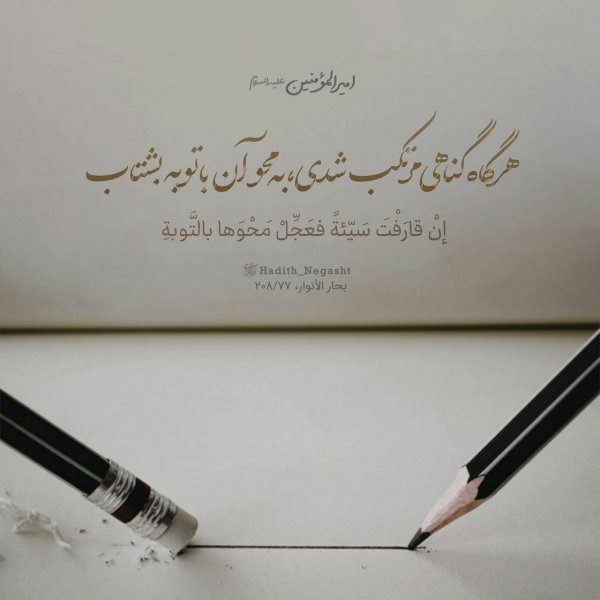 امیرالمؤمنین علیه‌السلام
هرگاه گناهی مرتکب شدی، به محو آن با توبه بشتاب
إِنْ قارَفْتَ سَيّئةً فعَجِّلْ مَحْوَها بالتَّوبةِ
Hadith_Negasht
بحار الأنوار، ۲۰۸/۷۷